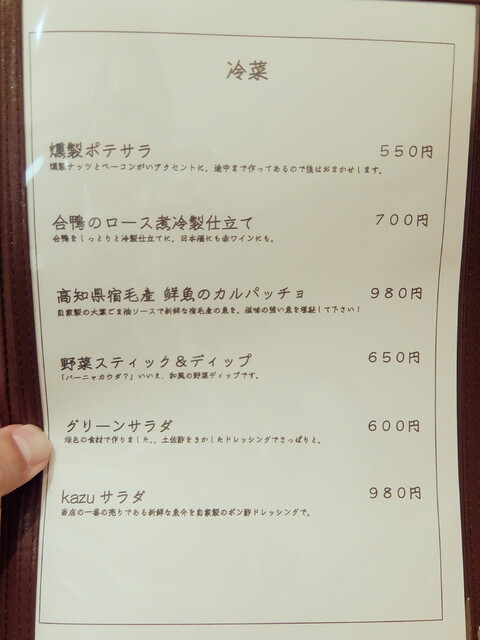 冷菜
燻製ポテサラ 550円
燻製ナッツとベーコンがいいアクセントに。途中まで作ってあるので後はおまかせします。
合鴨のロース煮冷製仕立て 700円
合鴨をしっとりと冷製仕立てに。日本酒にも赤ワインにも。
高知県宿毛産 鮮魚のカルパッチョ 980円
自家製の大葉ごま油ソースで新鮮な宿毛産の魚を。滋味の強い魚を堪能して下さい!
野菜スティック&ディップ 650円
「バーニャカウダ?」いいえ、和風の野菜ディップです。
グリーンサラダ 600円
緑色の食材で作りました。、土佐酢をきかしたドレッシングでさっぱりと。
kazuサラダ 980円
当店の一番の売りである新鮮な魚介を自家製のポン酢ドレッシングで。